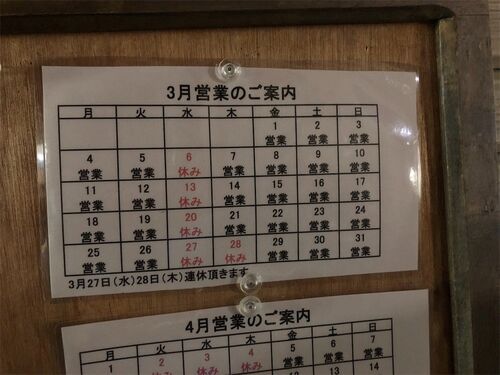 3月営業のご案内
月 火 水 木 金 土 日
1 2 3
営業 営業 営業
4 5 6 7 8 9 10
営業 営業 休み 営業 営業 営業 営業
11 12 13 14 15 16 17
営業 営業 休み 営業 営業 営業 営業
18 19 20 21 22 23 24
営業 営業 休み 営業 営業 営業 営業
25 26 27 28 29 30 31
営業 営業 休み 休み 営業 営業 営業
3月27日(水)28日(木)連休頂きます
4月営業のご案内
月 火 水 木 金 土 日
1 2 3 4 5 6 7
休み 休み 休み 営業 営業 営業
12 13 14